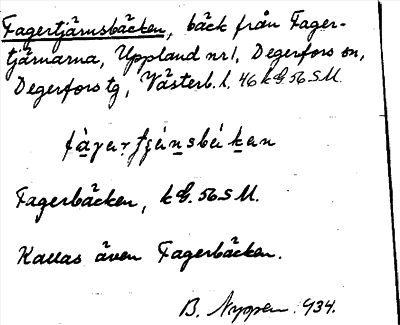 Fagertjärnsbäcken, bäck från Fager-
tjärnarna, Uppland nr 1, Degerfors sn,
Degerfors tg, Västerb. l. 46 56 SM.
Fagerbäcken, 56 SM.
Kallas även Fagerbäcken.
B. Nyppen. 934.